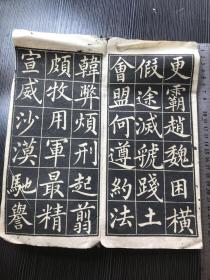 更霸趙魏困橫
假途滅虢踐土
會盟何遵約法
韓弊煩刑起翦
頗牧用軍最精
宣威沙漠馳譽